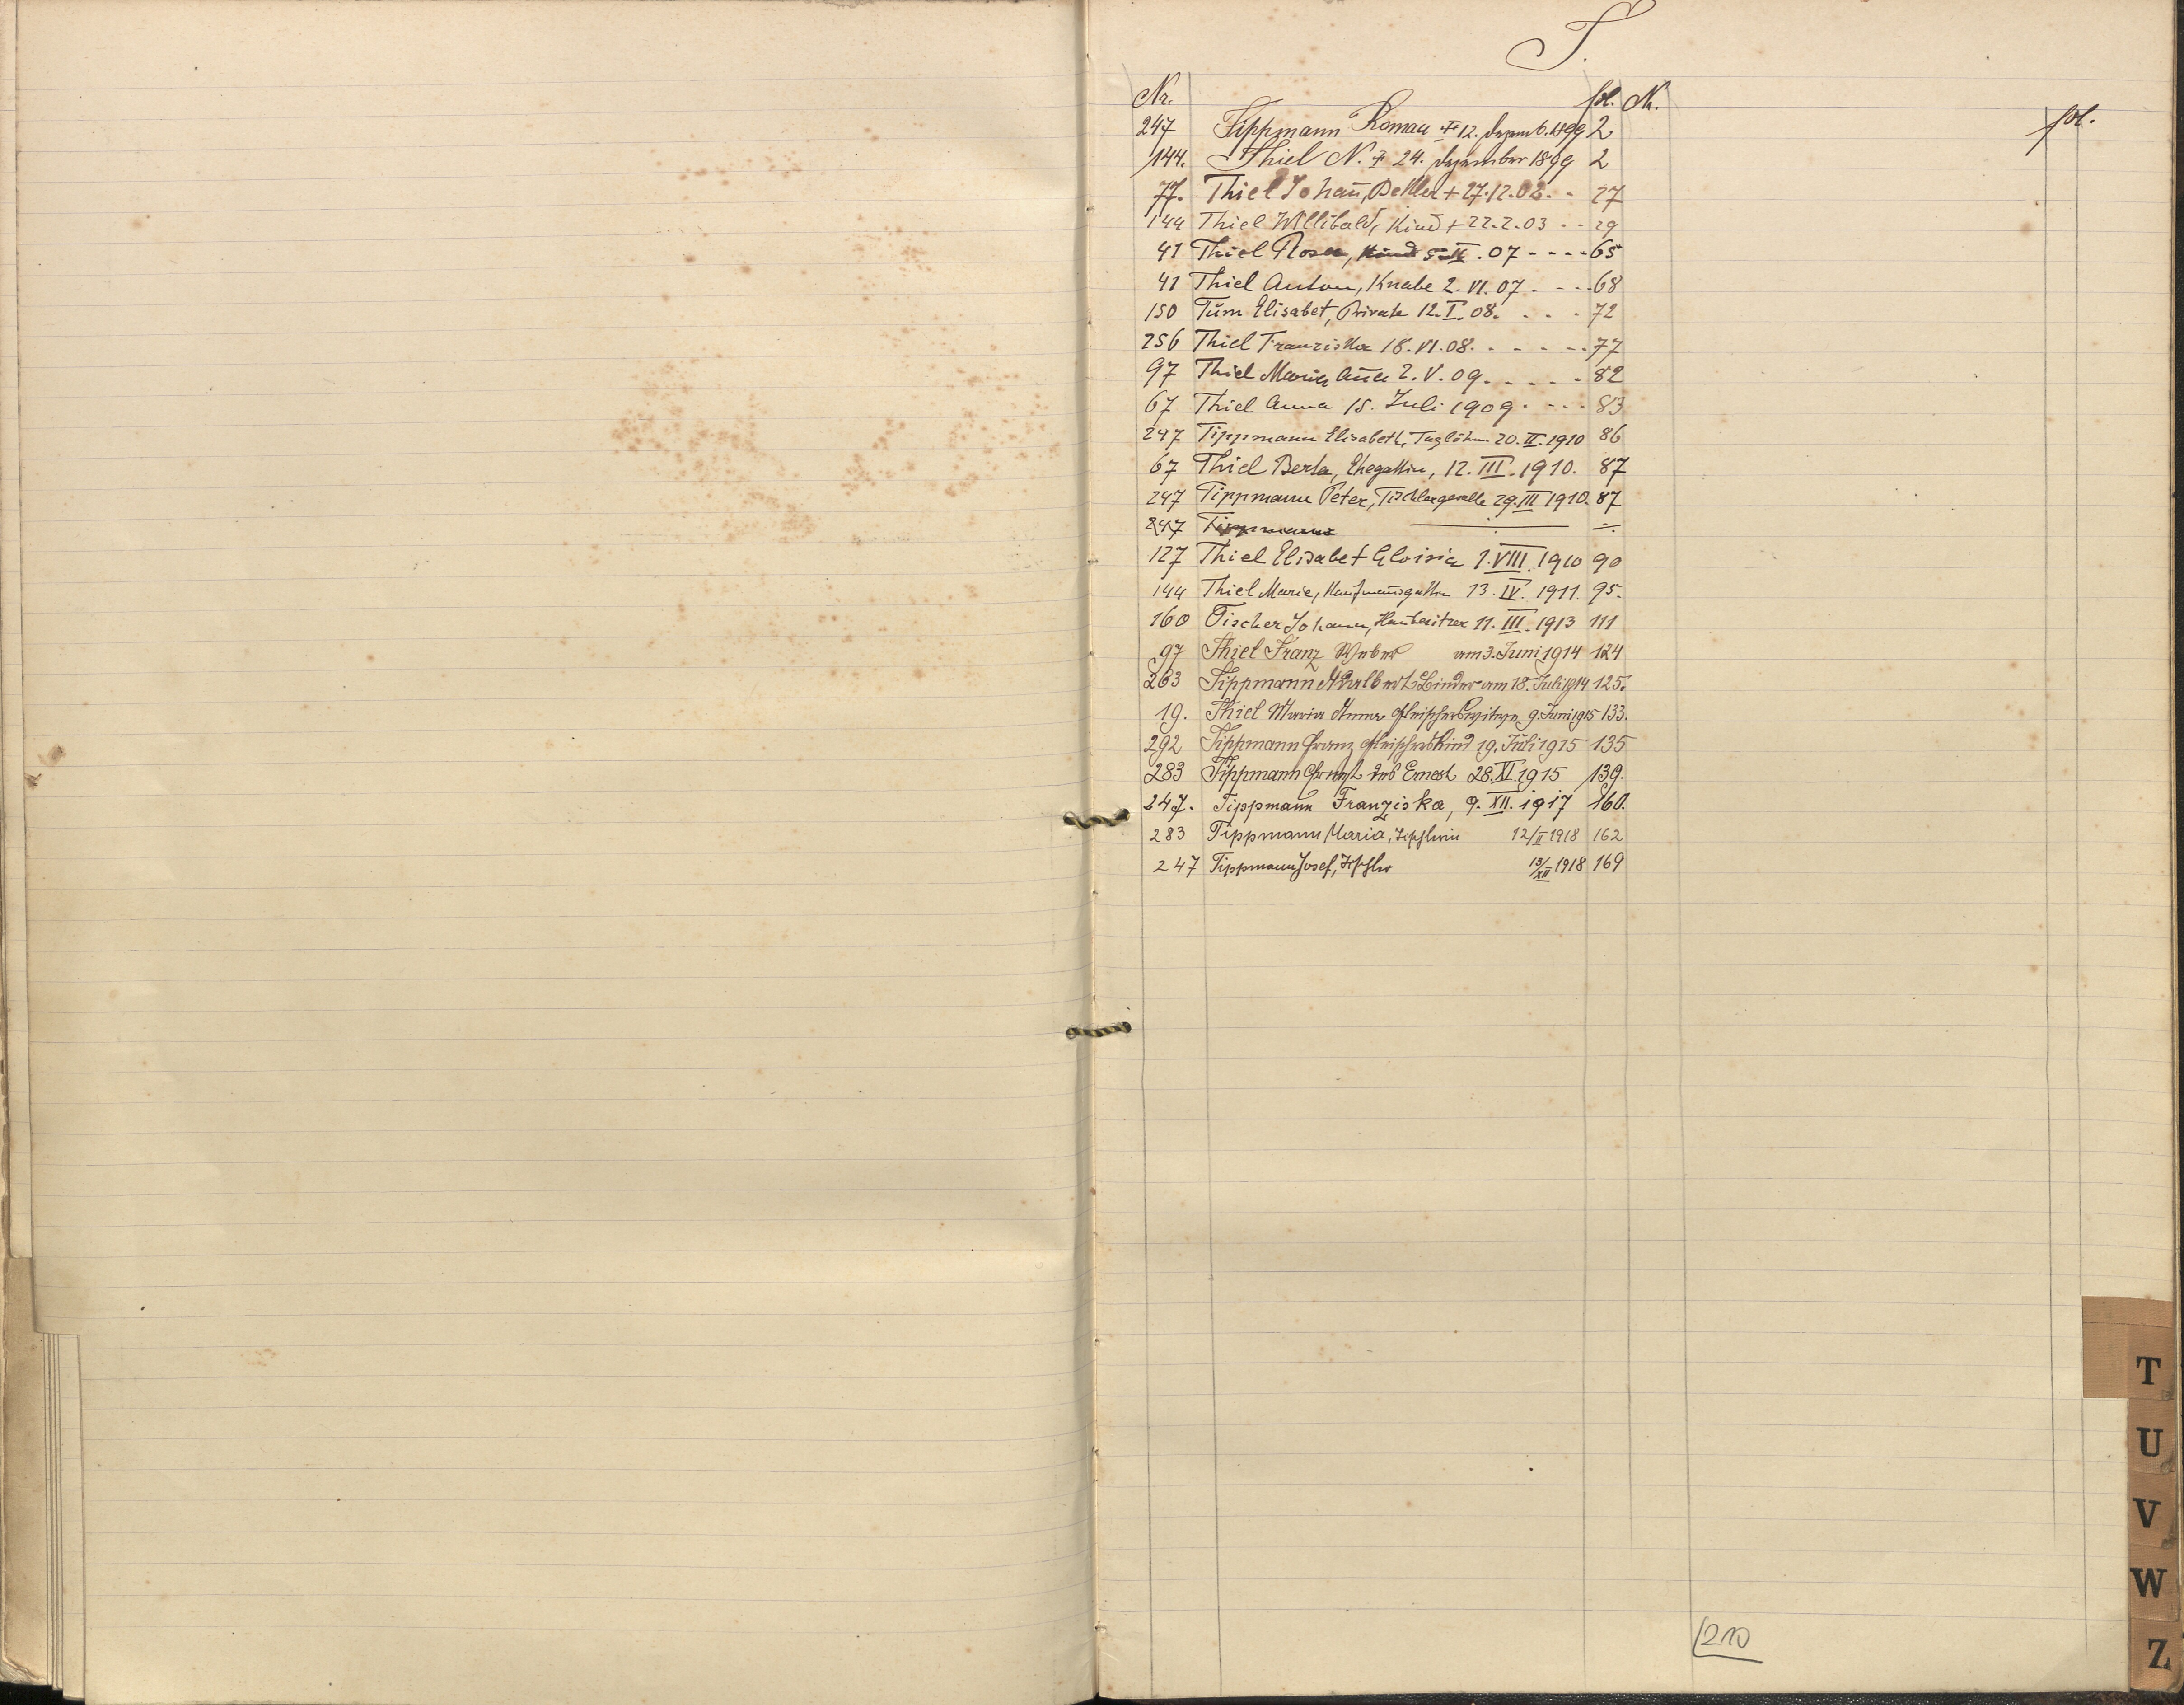 T.
Nr. fol. Nr. fol.
247 Tippmann Roman + 12. Dezemb. 1899 2
144. Thiel N. + 24. Dezember 1899 2
77. Thiel Johan̄, Bettler + 27.12.02. - 27
144 Thiel Willibald, Kind + 22.2.03 - - 29
41 Thiel Rosa, Kind 5. .07 - - - - 65
41 Thiel Anton, Knabe 2. VI. 07. - - - 68
150 Tům Elisabet, Private 12. I. 08. - - - 72
256 Thiel Franziska 18. VI. 08. - - - - - 77
97 Thiel Maria An̄a 2. V. 09. - - - - 82
67 Thiel Anna 15. Juli 1909. - - - 83
247 Tippmann Elisabeth, Taglöhn. 20. II. 1910 86
67 Thiel Berta, Ehegattin, 12. III. 1910. 87
247 Tippmann Peter, Tischlergeselle 29. III 1910. 87
247 Tippmann
127 Thiel Elisabet Aloisia 1. VIII. 1910 90
144 Thiel Marie, Kaufman̄sgattin 13. IV. 1911 95.
160 Tischer Johann, Hausbesitzer 11. III. 1913 111
97 Thiel Franz Weber am 3. Juni 1914 124
263 Tippmann Adalbert Binder am 18. Juli 1914 125.
19. Thiel Maria Anna Fleischerswitwe 9. Juni 1915 133.
292 Tippmann Franz Fleischers Kind 19. Juli 1915 135
283 Tippmann Ernst des Ernest 28. XI. 1915 139.
247. Tippmann Franziska, 9. XII. 1917 160.
283 Tippmann Maria, Tischlerin 12/II 1918 162
247 Tippmann Josef, Tischler 13/XII 1918 169
T
U
V
W
Z
210